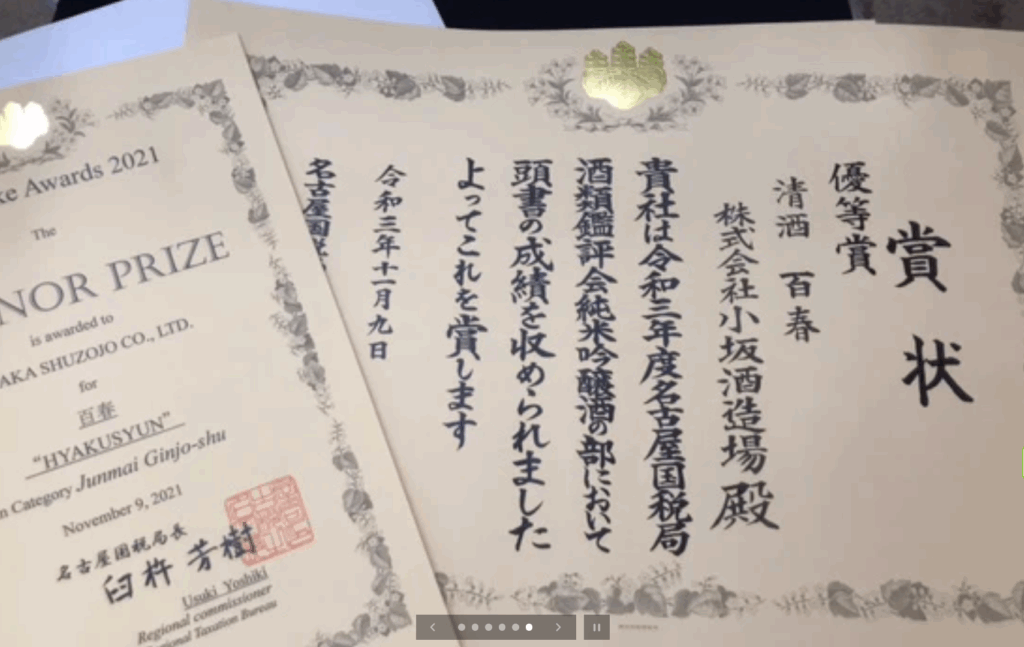 賞状
優等賞
清酒 百春
株式会社小坂酒造場殿
貴社は令和三年度名古屋国税局
酒類鑑評会純米吟醸酒の部において
頭書の成績を収められました
よってこれを賞します
令和三年十一月九日
名古屋国税
ke Awards 2021
The
NOR PRIZE
is awarded to
AKA SHUZOJO CO., LTD.
for
百春
“HYAKUSYUN”
n Category Junmai Ginjo-shu
November 9, 2021
名古屋国税局長
臼杵 芳樹
Usuki Yoshiki
Regional commissioner
onal Taxation Bureau